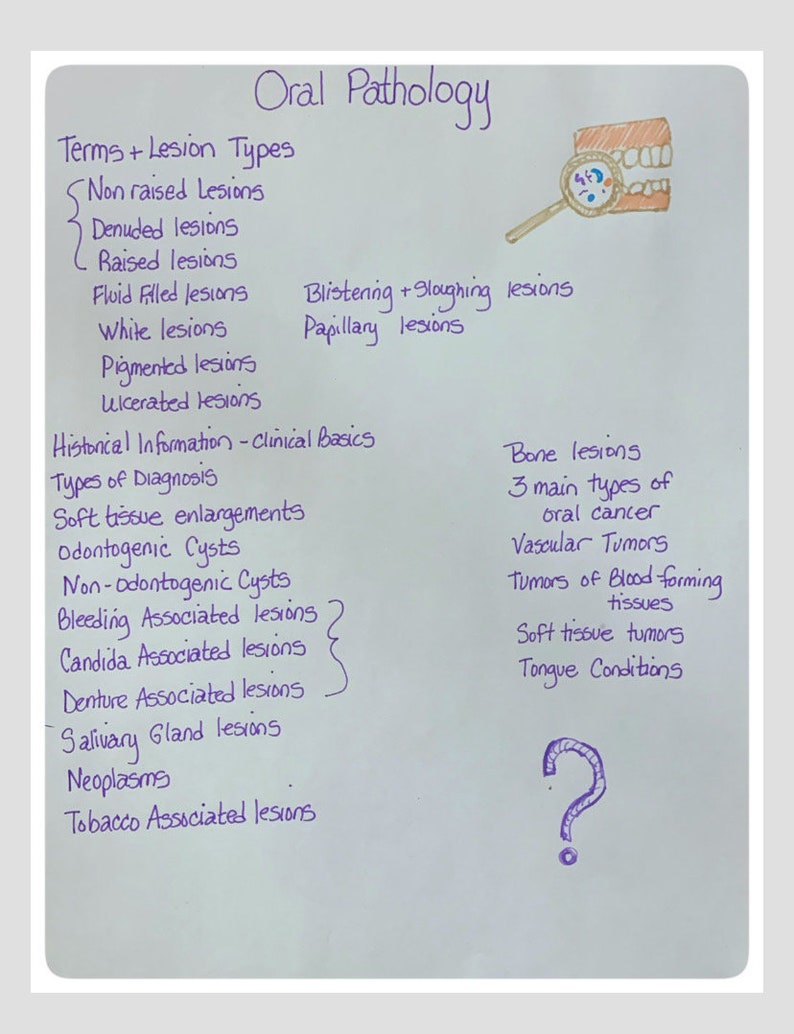 Oral Pathology
Terms + Lesion Types
Non raised Lesions
Denuded lesions
Raised lesions
Fluid Filled lesions
White lesions
Pigmented lesions
Ulcerated lesions
Blistering + Sloughing lesions
Papillary lesions
Historical Information - Clinical Basics
Types of Diagnosis
Soft tissue enlargements
Odontogenic Cysts
Non-Odontogenic Cysts
Bleeding Associated lesions
Candida Associated lesions
Denture Associated lesions
Salivary Gland lesions
Neoplasms
Tobacco Associated lesions
Bone lesions
3 main types of
oral cancer
Vascular Tumors
Tumors of Blood-forming
tissues
Soft tissue tumors
Tongue Conditions
?